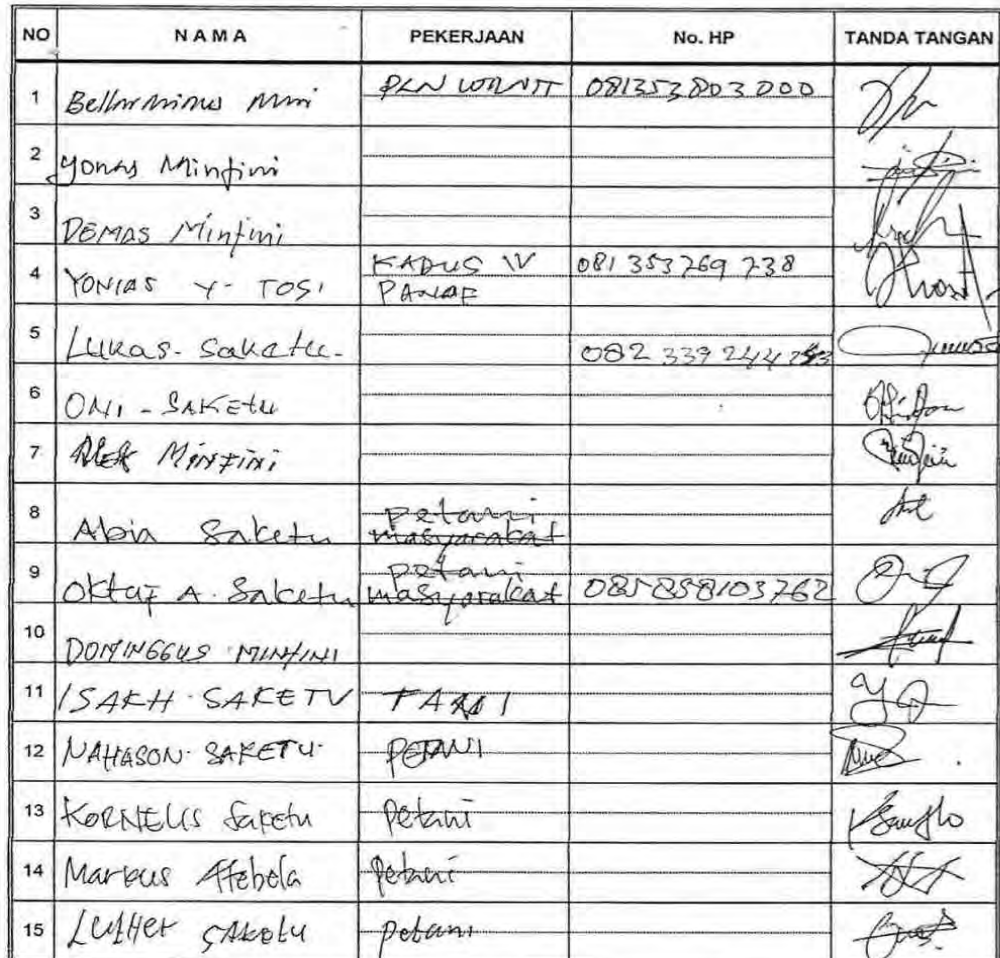 NO NAMA PEKERJAAN No. HP TANDA TANGAN
1 Bellarminus PLN 081353803000
2 Yonas Minfini
3 DEMAS Minfini
4 YONIAS Y- TOSI KADUS IV 081 353 769 738
PANAF
5 Lukas. Saketu. 082 339 244
6 ONI - SAKEtu
7 Alek MINFINI
8 Abia Saketu petani
masyarakat
9 Oktaf A. Saketu petani
masyarakat 085858103762
10 DOMINGGUS MINFINI
11 ISAKH SAKETU TANI
12 NAHASON SAKETU PETANI
13 KORNELIS Saketu Petani
14 Markus Petani
15 Luther SAketu Petani